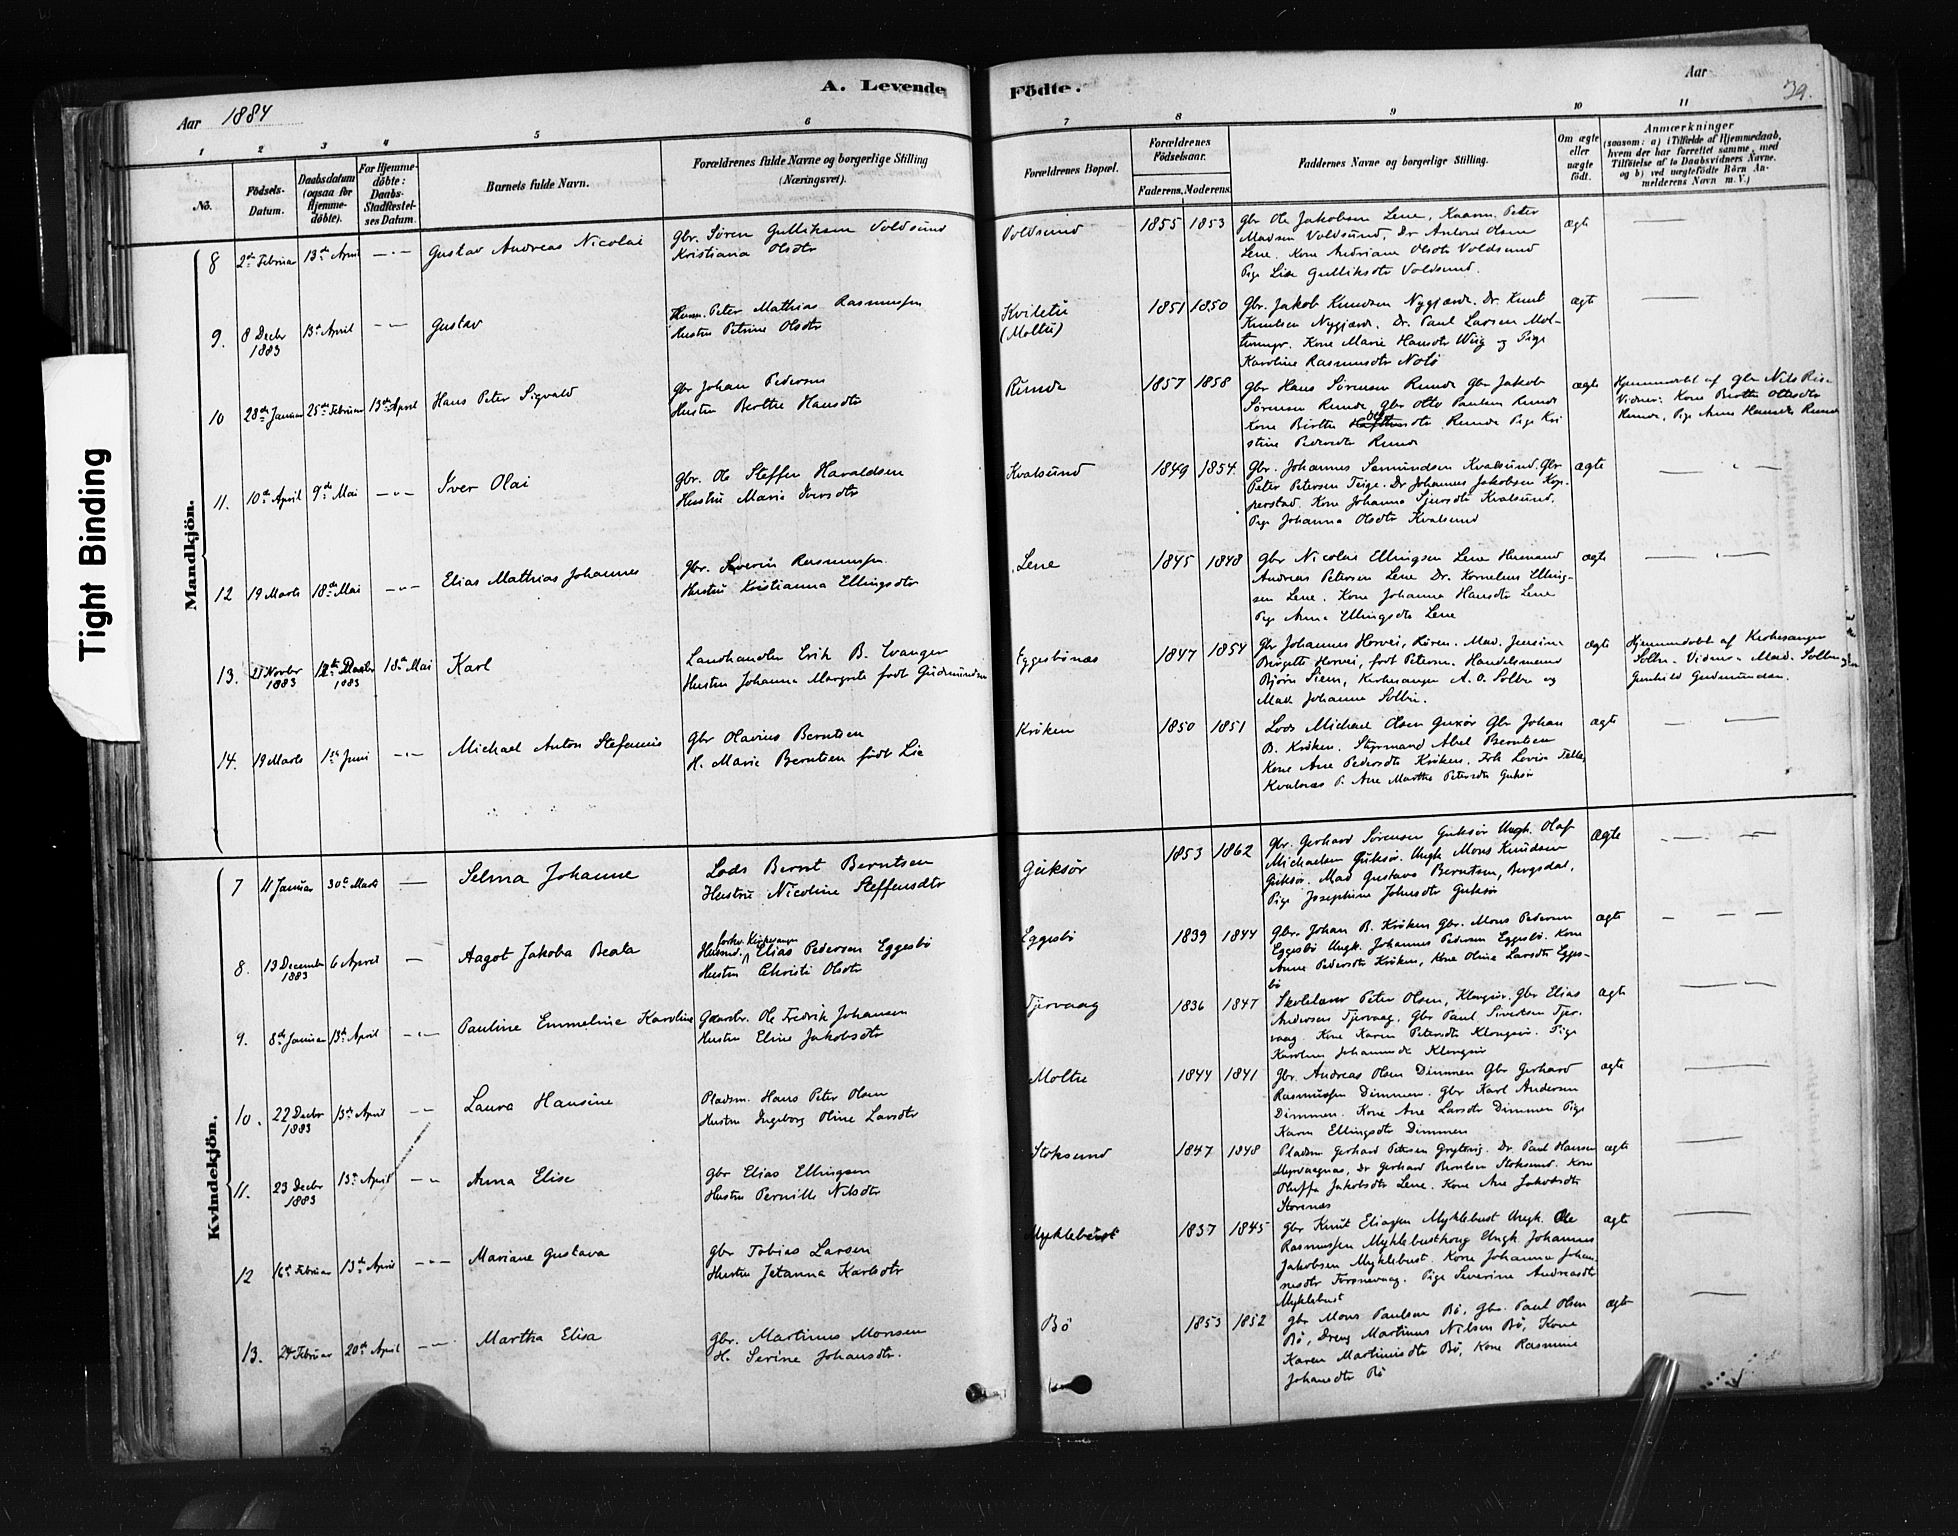 Tight Binding
A. Levende Födte.
Aar 1884
Aar
39.
1 2 3 4 5 6 7 8 9 10 11
No.
Födsels-Datum.
Daabsdatum (ogsaa for Hjemme-döbte).
For Hjemme-döbte: Daabs-Stadfæstel-ses Datum.
Barnets fulde Navn.
Forældrenes fulde Navne og borgerlige Stilling (Næringsvei).
Forældrenes Bopæl.
Forældrenes Födselsaar.
Faderens. Moderens.
Faddernes Navne og borgerlige Stilling.
Om ægte eller uægte födt.
Anmærkninger
(saasom: a) i Tilfælde af Hjemmedaab, hvem der har forrettet samme, med Tilföielse af to Daabsvidners Navne. og b) ved uægtefödte Börn Anmelderens Navn m. V.)
Mandkjön.
8 2den Februar 13de April Gustav Andreas Nicolai
Gbr. Søren Gulliksen Voldsund
Kristiana Olsdtr
Voldsund 1855 1853
Gbr Ole Jakobsen Lene, Kaarm. Peter
Madsen Voldsund, Dr Antoni Olsen
Lene. Kone Andriane Olsdtr Voldsund
Pige Lise Gulliksdtr Voldsund.
ægte
9. 8 Decbr 1883 13de April Gustav
Peter Mathias Rasmussen
Hustru Petrine Olsdtr
Kviletu (Moltu) 1851 1850
Gbr. Jakob Knudsen Nygjærde. Dr. Knut
Knutsen Nygjærde. Dr. Paul Larsen Mol-
Kone Marie Hansdtr Wiig og Pige
Karoline Rasmusdtr Notø
ægte
10 28de Januar 25de Februar 13de April Hans Peter Sigvald
Gbr Johan Pedersen
Hustru Berthe Hansdtr
Runde 1857 1858
Gbr Hans Sørensen Runde Gbr Jakob
Sørensen Runde Gbr Otto Paulsen Runde
Kone Birthe Runde Pige Kri
stine Pedersdtr Runde
ægte
Hjemmedøbt af Gbr Nils
Vidner: Kone Birthe Ottesdtr
Runde, Pige Anne Hansdtr Runde
11. 10de April 9de Mai Iver Olai
Gbr. Ole Steffen Haraldsen
Hustru Marie Iversdtr
Kvalsund 1849 1854.
Gbr. Johannes Samundsen Kvalsund. Gbr
Peter Petersen Teige. Dr Johannes Jakobsen Kop-
perstad. Kone Johanna Sjursdtr Kvalsund.
Pige Johanna Olsdtr Kvalsund
ægte
12 19 Marts 18de Mai Elias Mathias Johannes
Gbr. Severin Rasmussen.
Hustru Kristianna Ellingsdtr
Lene 1845 1848
Gbr Nicolai Ellingsen Lene Husmand
Andreas Petersen Lene Dr. Kornelius Elling-
sen Lene. Kone Johanna Hansdtr Lene
Pige Anna Ellingsdtr Lene
ægte
13. 21 Novbr 1883 12te Decbr 1883 18de Mai Karl
Landhandler Erik B. Evanger
Hustru Johanna Margrete født Gudmundsen
Eggesbønæs 1847 1854
Gbr Johannes Horvei, Mad. Jensine
Birgitte Horvei, født Petersen. Handelsmand
Bjørn Siem, Kirkesanger A. O. Solbu og
Mad. Johanne Solbu.
ægte
Hjemmedøbt af Kirkesanger
Solbu. Vidner: Mad. Solbu og
Gunhild Gudmundsen.
14. 19 Marts 1ste Juni Michael Anton Stefanus
Gbr Olavius Berntsen
H. Marie Berntsen født Lie
Krøken 1850 1851
Lods Michael Olsen Guxør Gbr Johan
B. Krøken. Styrmand Abel Berntsen
Kone Ane Pedersdtr Krøken, Frk Lovise
Kvalnæs P. Ane Marthe Petersdtr Guksør
ægte
Kvindekjön.
7 11 Januar 30te Marts Selma Johanne
Lods Bernt Berntsen
Hustru Nicoline Steffensdtr
Guksør 1853 1862
Gbr. Gerhard Sørensen Guksør Ungk. Olaf
Michaelsen Guksør. Ungk Mons Knudsen
Guksør. Mad Gustava Berntsen, Bergsdal,
Pige Josephine Johnsdtr Guksør
ægte
8. 13 December 1883 6 April Aagot Jakoba Beata
forhv. Kirkesanger
Husmd. Elias Pedersen Eggesbø
Hustru Christi Olsdtr
Eggesbø 1839 1844
Gbr. Johan B. Krøken Gbr. Mons Pedersen
Eggesbø Ungk. Johannes Pedersen Eggesbø. Kone
Anne Pedersdtr Krøken, Kone Oline Larsdtr Egges-
bø
ægte
9. 8de Januar 13de April Pauline Emmeline Karoline
Gaardbr. Ole Fredrik Johansen
Hustru Eline Jakobsdtr
Tjervaag 1836 1847
Skolelærer Peter Olsen, Klongsør. Gbr Elias
Andersen Tjervaag, Gbr Paul Sivertsen Tjer-
vaag. Kone Karen Petersdtr Klongsør. Pige
Karoline Johannesdtr Klongsør
ægte
10. 22 Decbr 1883 13de April Laura Hansine
Pladsm. Hans Peter Olsen
Hustru Ingeborg Oline Larsdtr
Moltu 1844 1841
Gbr. Andreas Olsen Dimmen Gbr Gerhard
Rasmussen Dimmen. Gbr Karl Andersen
Dimmen. Kone Ane Larsdtr Dimmen Pige
Karen Ellingsdtr Dimmen
ægte
11. 23 Decbr 1883 13de April Anna Elise
Gbr Elias Ellingsen
Hustru Pernille Nilsdtr
Stoksund 1847 1848
Pladsm Gerhard Petersen Grytevig. Dr. Paul Hansen
Myrvaagnæs, Dr Gerhard Berntsen Stoksund. Kone
Oluffa Jakobsdtr Lene. Kone Ane Jakobsdtr
Storenes
ægte
12 16de Februar 13de April Mariane Gustava
Gbr Tobias Larsen
Hustru Jetanna Karlsdtr
Myklebust 1837 1845
Gbr Knut Eliassen Myklebust Ungk. Ole
Rasmussen Myklebusthoug Ungk Johannes
Jakobsen Myklebust. Kone Johanna Johan
nesdtr Torsnevaag. Pige Severine Andreasdtr
Myklebust
ægte
13. 24 Februar 20de April Martha Elisa
Gbr. Martinus Monsen
H. Serine Johansdtr.
Bø 1853 1852
Gbr Mons Paulsen Bø, Gbr. Paul Olsen
Bø, Dreng Martinus Nilsen Bø, Kone
Karen Martinusdtr Bø, Kone Rasmine
Johansdtr Bø
ægte